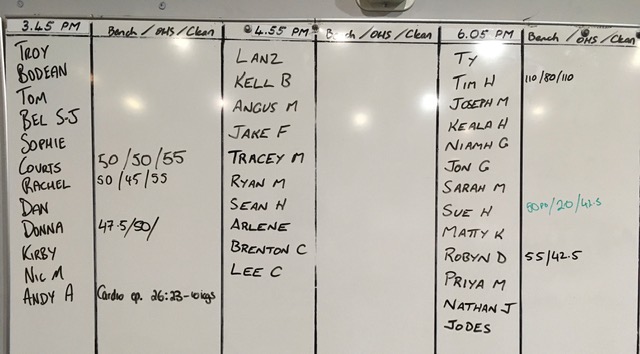 3.45 PM Bench/OHS/Clean
TROY
BODEAN
TOM
BEL S-J
SOPHIE
COURTS 50/50/55
RACHEL 50/45/55
DAN
DONNA 47.5/50/
KIRBY
NIC M
ANDY A Cardio op. 26:23-10kgs
4.55 PM Bench/OHS/Clean
LANZ
KELL B
ANGUS M
JAKE F
TRACEY M
RYAN M
SEAN H
ARLENE
BRENTON C
LEE C
6.05 PM Bench/OHS/Clean
TY
TIM H 110/80/110
JOSEPH M
KEALA H
NIAMH G
JON G
SARAH M
SUE H /20/42.5
MATTY K
ROBYN D 55/42.5
PRIYA M
NATHAN J
JODES